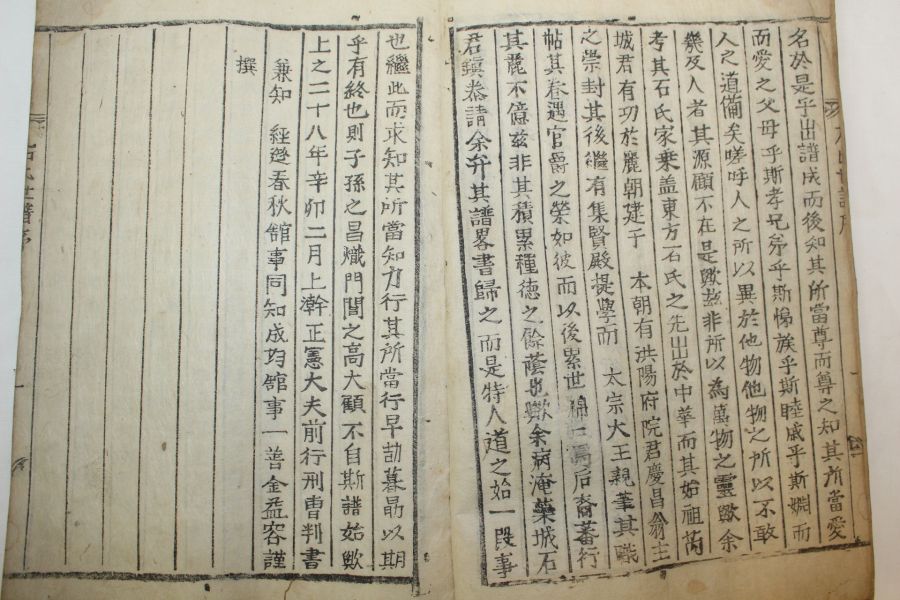 名於是乎出譜成而後知其所當尊而尊之知其所當愛
而愛之父母乎斯孝兄弟乎斯悌族乎斯睦戚乎斯婣而
人之道備矣嗟呼人之所以異於他物他物之所以不敢
幾及人者其源顧不在是歟玆非所以為萬物之靈歟余
考其石氏家乗盖東方石氏之先出於中華而其始祖芮
城君有功於麗朝建于 本朝有洪陽府院君慶昌翁主
之崇封其後繼有集賢殿提學而 太宗大王親筆其職
帖其眷遇官爵之榮如彼而以後累世 后裔蕃衍
其麗不億玆非其積累種徳之餘蔭也歟余病淹藥城石
君鎭恭請余弁其譜畧書歸之而是特人道之始一段事
也繼此而求知其所當知力行其所當行早劼暮勗以期
乎有終也則子孫之昌熾門閭之高大顧不自斯譜始歟
上之二十八年辛卯二月上澣正憲大夫前行刑曹判書
兼知 經筵春秋舘事同知成均舘事一善金益容謹
撰
石氏世譜序